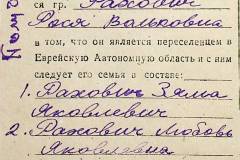 ся гр. Рахович
Рося Вальковна
в том, что он является переселенцем в
Еврейскую Автономную область и с ним
следует его семья в составе:
1. Рахович Зяма
Яковлевич
2. Рахович Любовь
Яковлевна